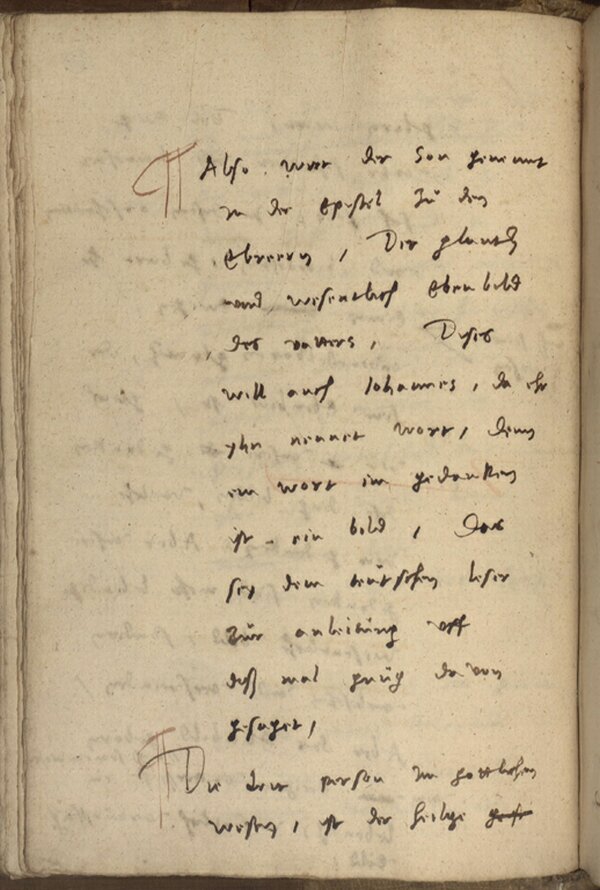 ¶ Also wirt der Son genennt
in der Epistel zu den
Ebreern, Der glantz
und wesentlich Ebenbild
des vatters, Dises
will auch Iohannes, da ehr
yhn nennet wort, denn
ein wort im gedancken
ist ein bild, Das
sey dem teütschen leser
zur anleitung uff
diß mal gnüg davon
gesaget,
¶ Die drit person im gottlichen
wesen, ist der heilige geist